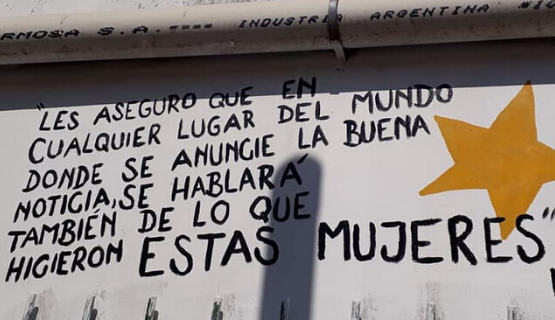 RMOSA S.A. INDUSTRIA ARGENTINA
"LES ASEGURO QUE EN
CUALQUIER LUGAR DEL MUNDO
DONDE SE ANUNCIE LA BUENA
NOTICIA, SE HABLARÁ
TAMBIÉN DE LO QUE
HIGIERON ESTAS MUJERES"